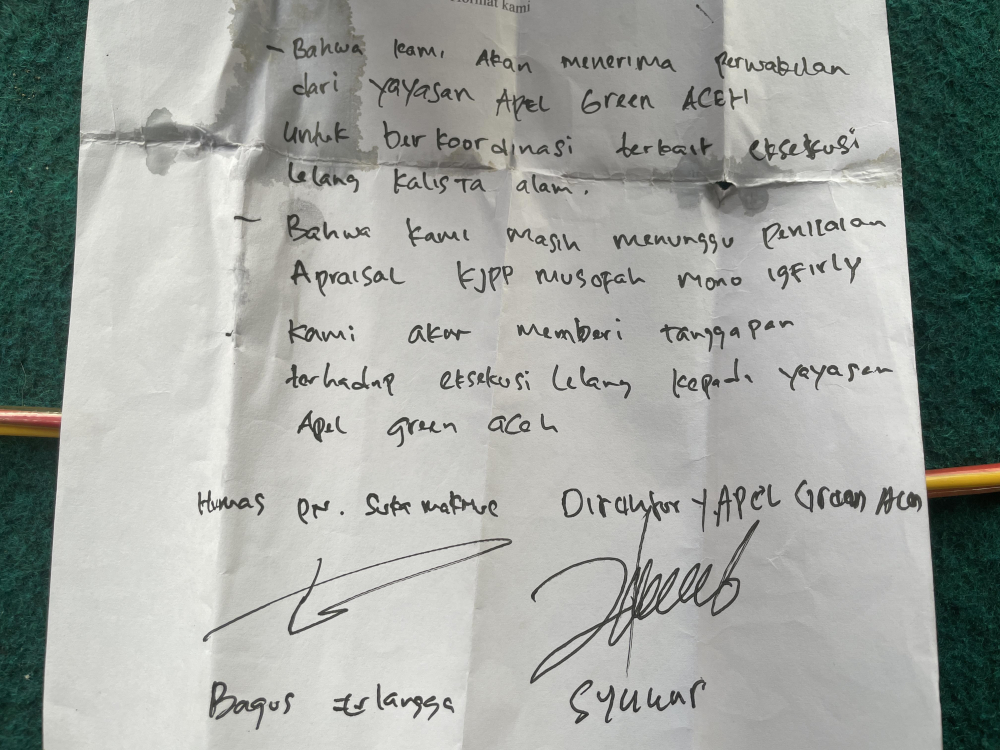 Hormat kami
- Bahwa kami Akan menerima perwakilan
dari yayasan APEL Green ACEH
untuk berkoordinasi terkait eksekusi
lelang Kalista alam.
- Bahwa kami masih menunggu penilaian
Apraisal KJPP musofah mono igfirly
- Kami akan memberi tanggapan
terhadap eksekusi lelang kepada yayasan
Apel green aceh
Humas PN. Suka makmue Diraktur Y.APEL Green Aceh
Bagus Erlangga Syukur